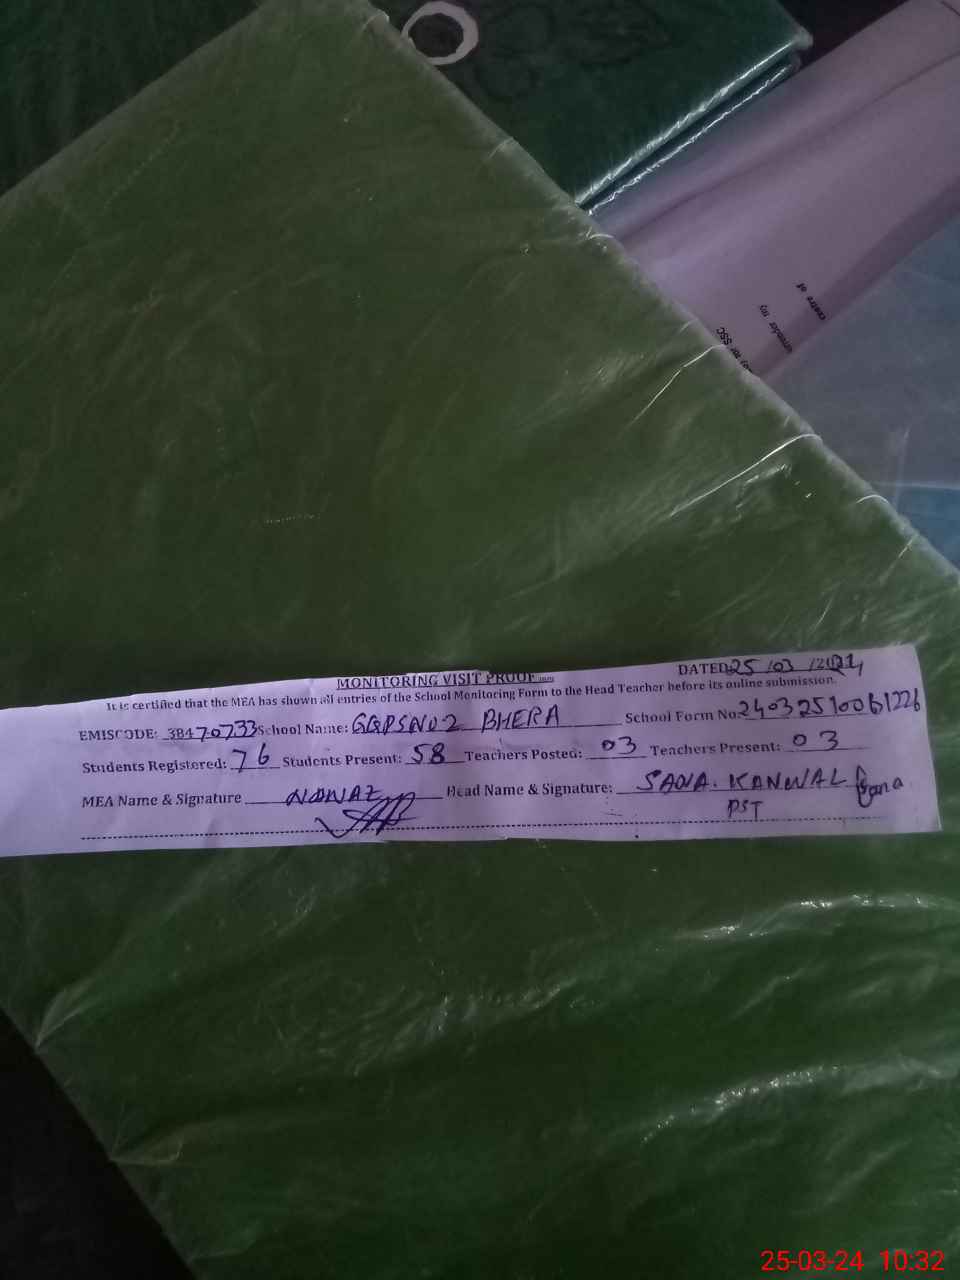 centre of
surrender my
for SSC
MONITORING VISIT PROOF
DATED 25/03/2024
It is certified that the MEA has shown all entries of the School Monitoring Form to the Head Teacher before its online submission.
EMISCODE: 38470733 School Name: GGPSNO2 BHERA School Form No: 24032510061226
Students Registered: 76 Students Present: 58 Teachers Posted: 03 Teachers Present: 03
MEA Name & Signature NAWAZ Head Name & Signature: SANA. KANWAL Sana
PST
25-03-24 10:32